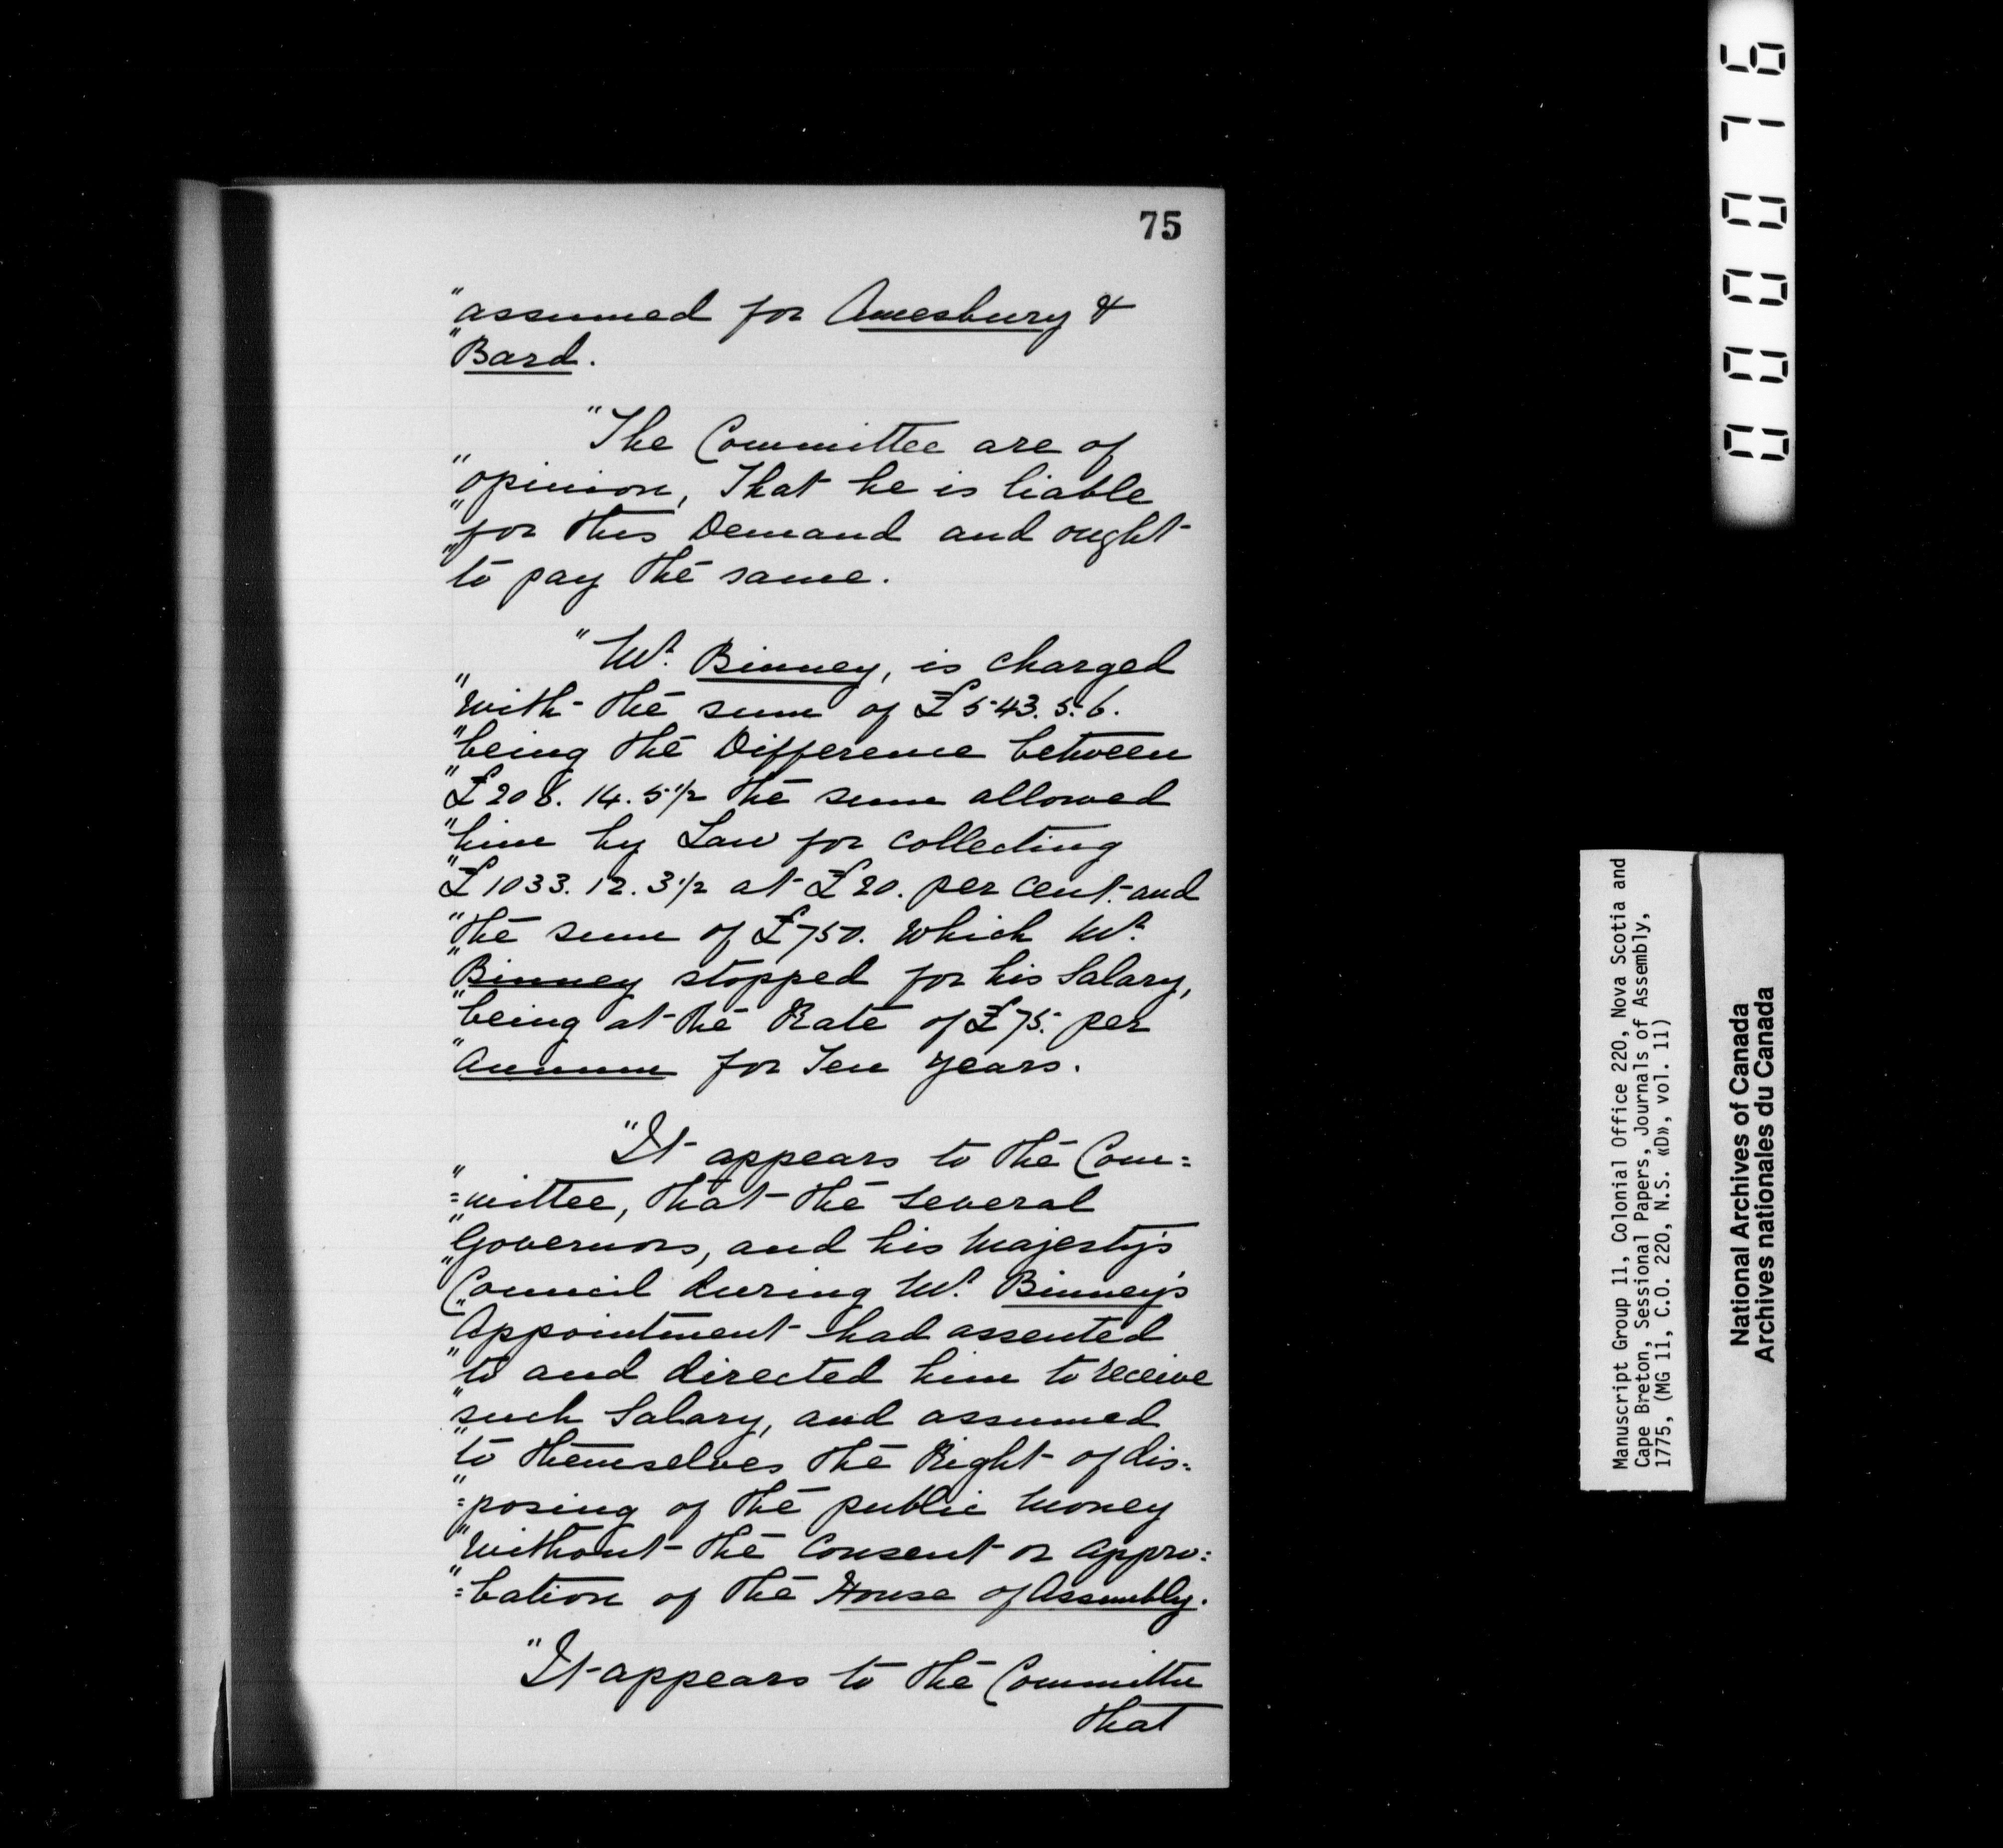 75
"assumed for Amesbury &
"Bard.
"The Committee are of
"opinion, That he is liable
"for this Demand and ought
"to pay the same.
"Mr. Binney, is charged
"with the sum of £543.5.6.
"being the Difference between
"£206.14.5½ the sum allowed
"him by Law for collecting
"£1033.12.3½ at £20. per cent. and
"the sum of £750. which Mr.
"Binney stopped for his Salary,
"being at the Rate of £75. per
"Annum for Ten years.
"It appears to the Com=
"=mittee, that the several
"Governors, and his Majesty's
"Council during Mr. Binney's
"Appointment had assented
"to and directed him to receive
"such Salary, and assumed
"to themselves the Right of dis=
"=posing of the public money
"without the Consent or appro=
"=bation of the House of Assembly.
"It appears to the Committee
that
000076
Manuscript Group 11, Colonial Office 220, Nova Scotia and
Cape Breton, Sessional Papers, Journals of Assembly,
1775, (MG 11, C.O. 220, N.S. «D», vol. 11)
National Archives of Canada
Archives nationales du Canada